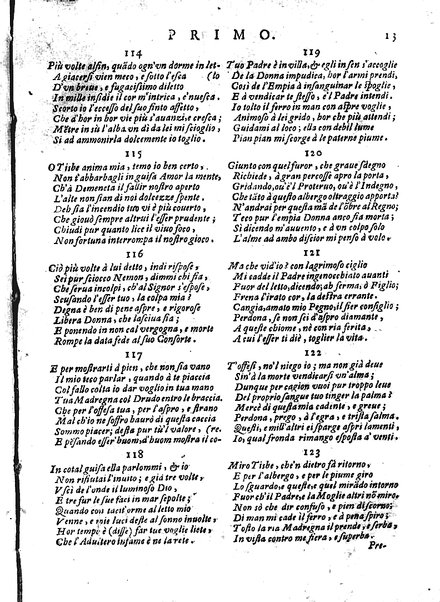 PRIMO. 13
114
Più volte alfin, quãdo ogn'vn dorme in let-
A giacersi vien meco, e sotto l'esca (to
D'vn breue, e fugacissimo diletto
In mille insidie il cor m'intrica, e'nuesca.
Scorto io l'eccesso del suo finto affetto,
Che d'hor in hor vie più s'auanzi,e cresca;
Mẽtre in sù l'alba vn dì da lei mi scioglio,
Sì ad ammonirla dolcemente io toglio.
115
O Tisbe anima mia, temo io ben certo,
Non t'abbarbagli in guisa Amor la mente,
Ch'à Demeneta il fallir nostro aperto
L'alte non sian di noi dolcezze spente.
Deh sia l'incendio tuo vi è più couerto,
Che giouò sempre altrui l'esser prudente;
Chiudi pur quanto lice il viuo foco,
Non fortuna interrompa il nostro gioco.
116
Ciò più volte à lui detto, indi rispose,
Sei pur sciocco Nemon, dimmi chi sia,
Che serua incolpi, ch'al Signor s'espose,
Scusando l'esser tuo, la colpa mia?
Degna è ben di pene aspre, e rigorose
Libera Donna, che lasciuia sia;
E ponendo in non cal vergogna, e morte
Rompe la data fede al suo Consorte.
117
E per mostrarti à pien, che non sia vano
Il mio teco parlar, quando à te piaccia
Col fallo colta io dar voglio in tua mano
Tua Madregna col Drudo entro le braccia.
Che per l'offesa tua, per l'aspro, e strano
Mal ch'io ne soffro haurò di questa caccia
Sommo piacer; desta pur tù'l valore, (re.
E pẽsando esser'buom,d'huom mostra il co-
118
In cotal guisa ella parlommi, & io
Non rifiutai l'inuito; e già tre volte,
Vscì de l'onde il luminoso Dio,
E tre fur le sue faci in mar sepolte;
Quando con tacit'orme al letto mio
Venne, e mie luci deste al sonno inuolte,
Hor tempo è (disse) far tue voglie liete,
Che l'Adultero infame è ne la rete.
119
Tuo Padre è in villa,& egli in sen s'accoglie
De la Donna impudica, hor l'armi prendi,
Così de l'Empia à insanguinar le spoglie,
E à vendicar te stesso, e'l Padre intendi.
Io tolto il ferro in man con aspre voglie,
Animoso à lei grido, hor che più attendi;
Guidami al loco; ella con debil lume
Pian pian mi scorge à le paterne piume.
120
Giunto con quel furor, che graue sdegno
Richiede, à gran percosse apro la porta,
Gridando, ou'è'l Proteruo, ou'è l'Indegno,
Che tãto à questo albergo oltraggio apporta?
N'andrai per questa mã de l'õbre al Regno;
Teco pur l'empia Donna anco sia morta;
Sì dicendo m'auuento, e à vn colpo solo
L'alme ad ambo discior mi penso à volo.
121
Ma che vid'io? con lagrimoso ciglio
Mi cadde il Padre ingenocchiato auanti
Fuor del letto,dicendo; ah ferma, ò Figlio;
Frena l'irato cor, la destra errante.
Cangia,amato mio Pegno,il fier consiglio;
Perdona, se non sei d'aspro diamante,
A queste chiome, nè con ria ferita,
A cui l'esser ti diè, toglier la vita.
122
T'offesi, no'l niego io; ma non già deue
Sin'à la morte vendicarsi vn'alma;
Dunque per cagion vuoi pur troppo leue
Del proprio sangue tuo tinger la palma?
Mercè di questa mia cadente, e greue;
Perdono, prego, à l'egra, e trista salma.
Questi, e mill'altri ei sparge aspri lamenti,
Io, qual fronda rimango esposta à'venti.
123
Miro Tisbe, ch'en dietro fà ritorno,
E per l'albergo, e per le piume giro
Lo sguardo,e queste,e quel mirãdo intorno
Fuor ch'il Padre,e la Moglie altri nõ miro.
Non sò che dir confuso, e pien di scorno;
Di man mi cade il ferro, e à pena spiro;
Tosto la ria Madregna il prende,e serba,
In vista contro me fiera, e superba.
Pre-